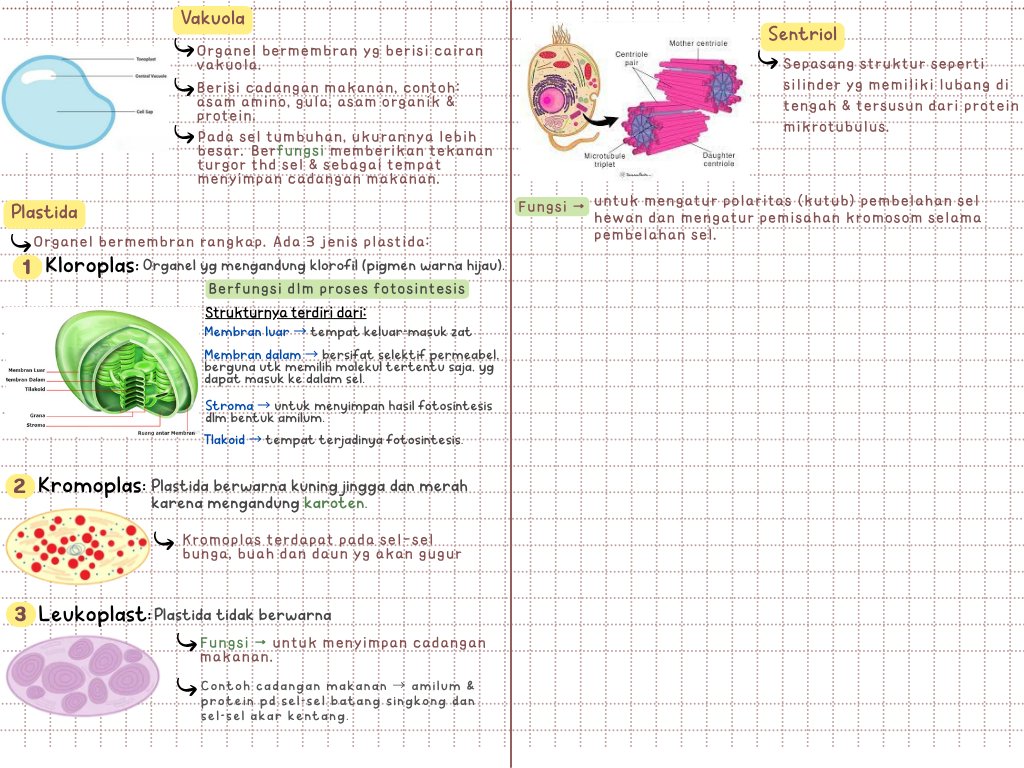 Vakuola
Organel bermembran yg berisi cairan
vakuola.
Berisi cadangan makanan, contoh:
asam amino, gula, asam organik &
protein.
Pada sel tumbuhan, ukurannya lebih
besar. Berfungsi memberikan tekanan
turgor thd sel & sebagai tempat
menyimpan cadangan makanan.
Tonoplast
Central Vacuole
Cell Sap
Plastida
Organel bermembran rangkap. Ada 3 jenis plastida:
1 Kloroplas: Organel yg mengandung klorofil (pigmen warna hijau).
Berfungsi dlm proses fotosintesis
Strukturnya terdiri dari:
Membran luar → tempat keluar-masuk zat
Membran dalam → bersifat selektif permeabel,
berguna utk memilih molekul tertentu saja, yg
dapat masuk ke dalam sel.
Stroma → untuk menyimpan hasil fotosintesis
dlm bentuk amilum.
Tlakoid → tempat terjadinya fotosintesis.
Membran Luar
Membran Dalam
Tilakoid
Grana
Stroma
Ruang antar Membran
2 Kromoplas: Plastida berwarna kuning jingga dan merah
karena mengandung karoten.
Kromoplas terdapat pada sel-sel
bunga, buah dan daun yg akan gugur
3 Leukoplast: Plastida tidak berwarna
Fungsi → untuk menyimpan cadangan
makanan.
Contoh cadangan makanan → amilum &
protein pd sel-sel batang singkong dan
sel-sel akar kentang.
Sentriol
Sepasang struktur seperti
silinder yg memiliki lubang di
tengah & tersusun dari protein
mikrotubulus.
Mother centriole
Centriole
pair
Microtubule
triplet
Daughter
centriole
Fungsi → untuk mengatur polaritas (kutub) pembelahan sel
hewan dan mengatur pemisahan kromosom selama
pembelahan sel.